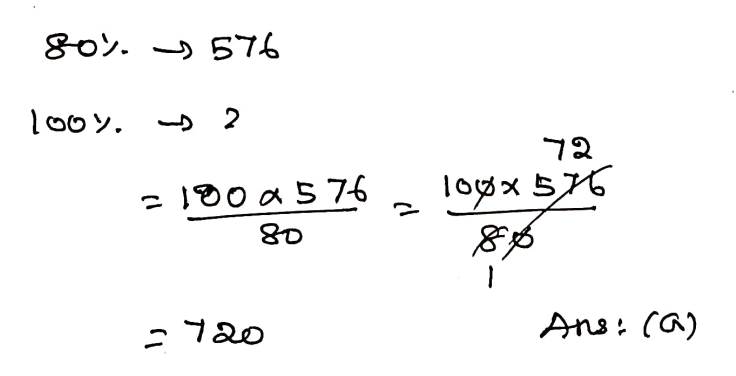 80% → 576
100% → ?
72
= 100 x 576 / 80 = 100 x 576 / 80
1
= 720 Ans: (a)